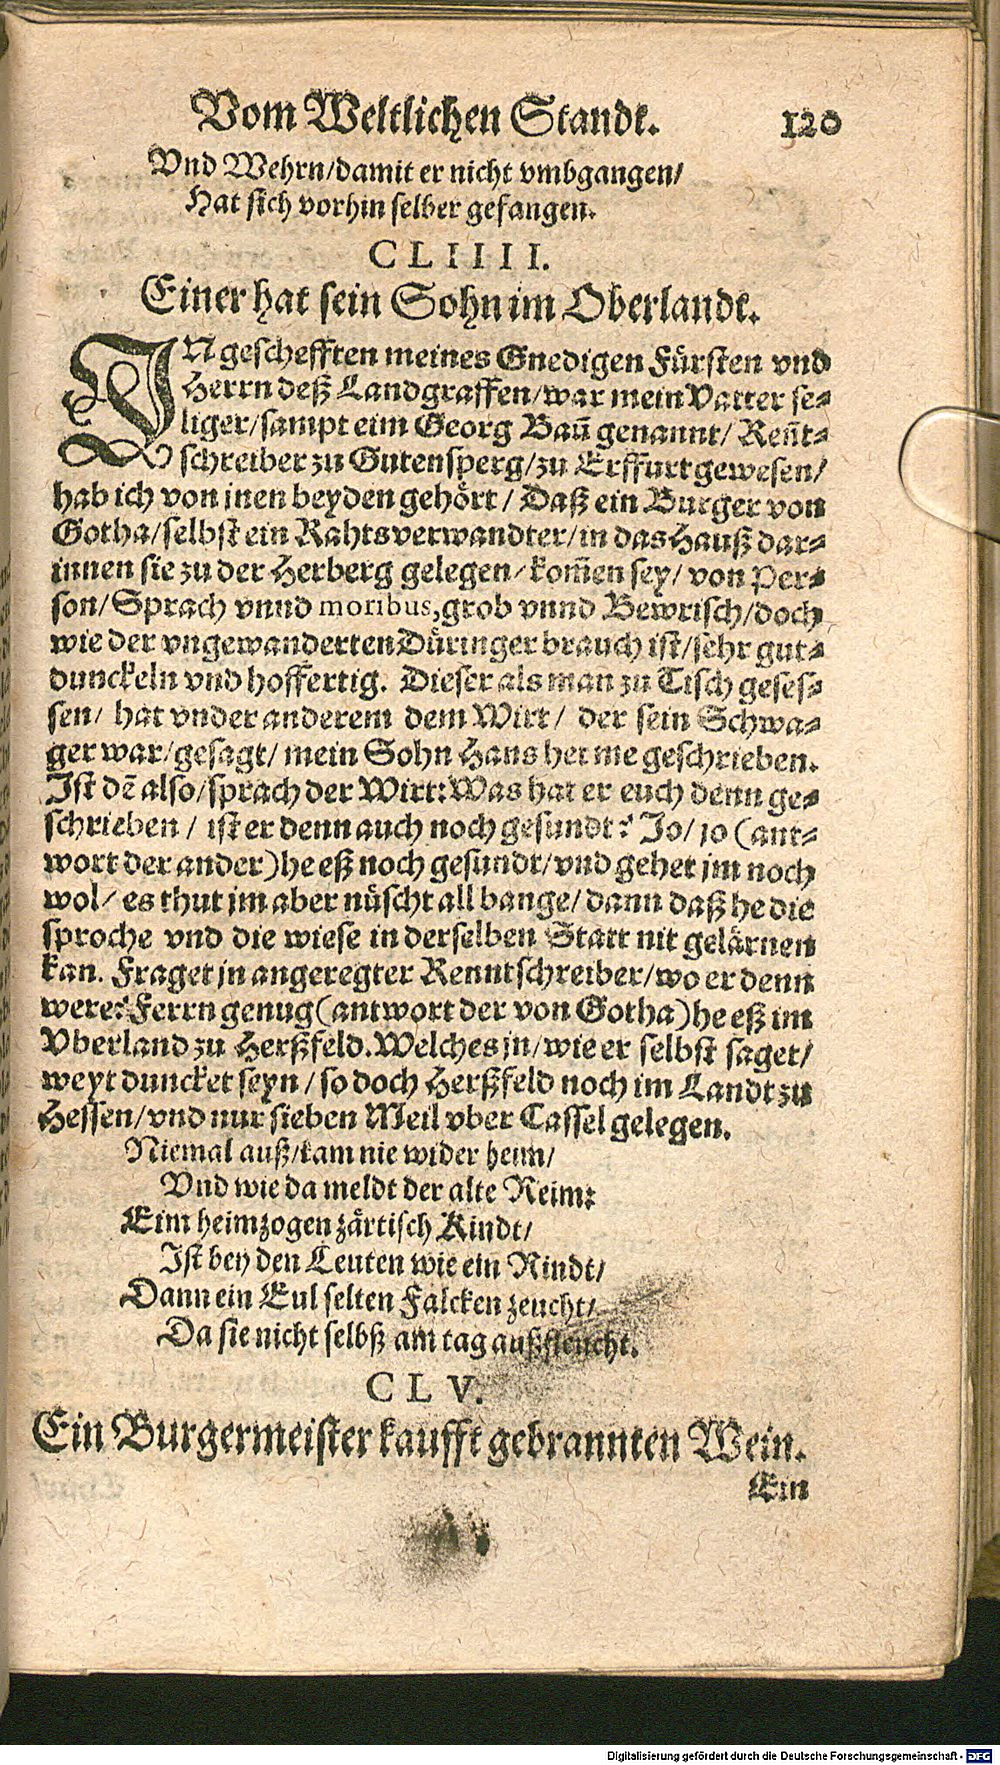 Vom Weltlichen Standt. 120
Vnd Wehrn/damit er nicht vmbgangen/
Hat sich vorhin selber gefangen.
CLIIII.
Einer hat sein Sohn im Oberlandt.
IN geschefften meines Gnedigen Fürsten vnd
Herrn deß Landgraffen/war mein Vatter se-
liger/sampt eim Georg Bau̅ genannt/ Ren̅t-
schreiber zu Gutensperg/zu Erffurt gewesen/
hab ich von jnen beyden gehört/ Daß ein Burger von
Gotha/selbst ein Rahtsverwandter/in das Hauß dar-
innen sie zu der Herberg gelegen/kom̅en sey/ von Per-
son/Sprach vnnd moribus, grob vnnd Bewrisch/doch
wie der vngewanderten Düringer brauch ist/sehr gut-
dunckeln vnd hoffertig. Dieser als man zu Tisch geses-
sen/ hat vnder anderem dem Wirt/ der sein Schwa-
ger war/gesagt/ mein Sohn Hans het me geschrieben.
Ist de̅ also/sprach der Wirt: Was hat er euch denn ge-
schrieben / ist er denn auch noch gesundt? Jo/ jo (ant-
wort der ander) he eß noch gesundt/vnd gehet jm noch
wol/ es thut jm aber nüscht all bange/ dann daß he die
sproche vnd die wiese in derselben Statt nit gelärnen
kan. Fraget jn angeregter Renntschreiber/wo er denn
were? Ferrn genug (antwort der von Gotha) he eß im
Vberland zu Herßfeld. Welches jn/wie er selbst saget/
weyt duncket seyn / so doch Herßfeld noch im Landt zu
Hessen/vnd nur sieben Meil vber Cassel gelegen.
Niemal auß/kam nie wider heim/
Vnd wie da meldt der alte Reim:
Eim heimzogen zärtisch Kindt/
Ist bey den Leuten wie ein Rindt/
Dann ein Eul selten Falcken zeucht/
Da sie nicht selbß am tag außfleucht.
CLV.
Ein Burgermeister kaufft gebrannten Wein.
Ein
Digitalisierung gefördert durch die Deutsche Forschungsgemeinschaft - DFG